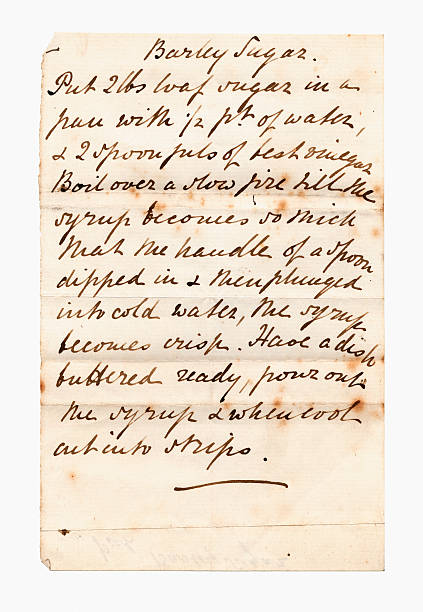 Barley Sugar.
Put 2lbs loaf sugar in a
pan with 1/2 pt of water,
& 2 spoonfuls of best vinegar
Boil over a slow fire till the
syrup becomes so thick
that the handle of a spoon
dipped in & then plunged
into cold water, the syrup
becomes crisp. Have a dish
buttered ready, pour out
the syrup & when cool
cut into strips.